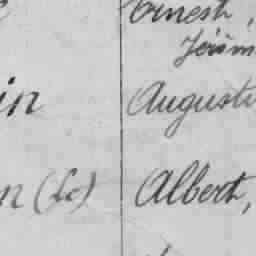 Ernest,
Jérôm
in Augusti
n (Le) Albert,